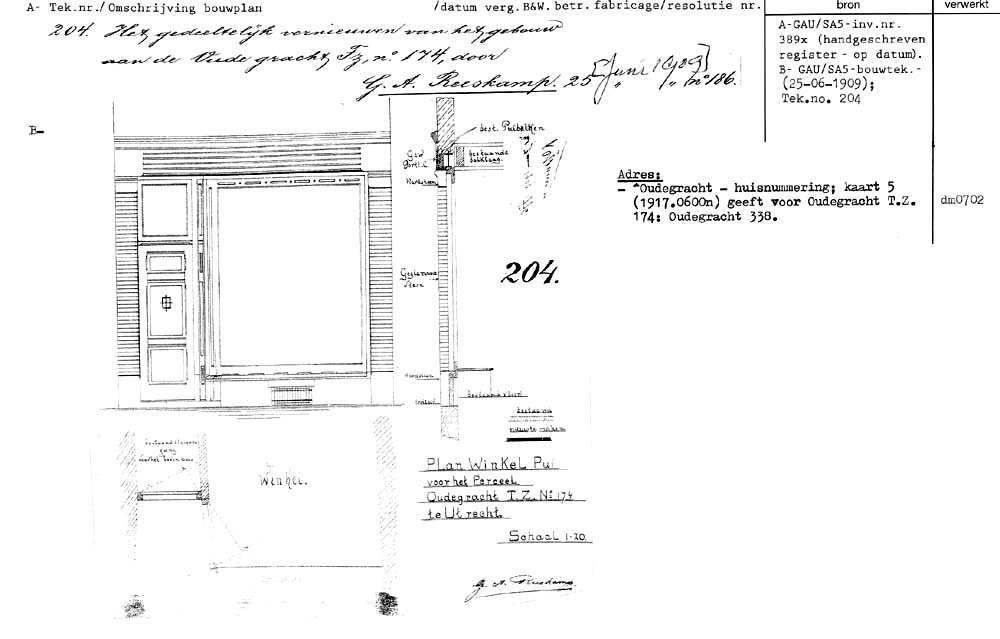 A- Tek.nr./Omschrijving bouwplan /datum verg.B&W.betr.fabricage/resolutie nr. bron verwerkt
204. Het gedeeltelijk vernieuwen van het gebouw
aan de Oude gracht Tz, no. 174, door
G. A. Reeskamp. 25 Juni 1909 „ „ no 186.
A-GAU/SA5-inv.nr.
389x (handgeschreven
register - op datum).
B- GAU/SA5-bouwtek.-
(25-06-1909);
Tek.no. 204
B-
best. Puibalken
bestaande
balklaag.
Adres:
- ^Oudegracht - huisnummering; kaart 5
(1917.0600n) geeft voor Oudegracht T.Z.
174: Oudegracht 338.
dm0702
204.
bestaand
nieuw te maken
Winkel.
Plan Winkel Pui
voor het Perceel
Oudegracht T.Z. No 174
te Utrecht.
Schaal 1-20.
G. A. Reeskamp